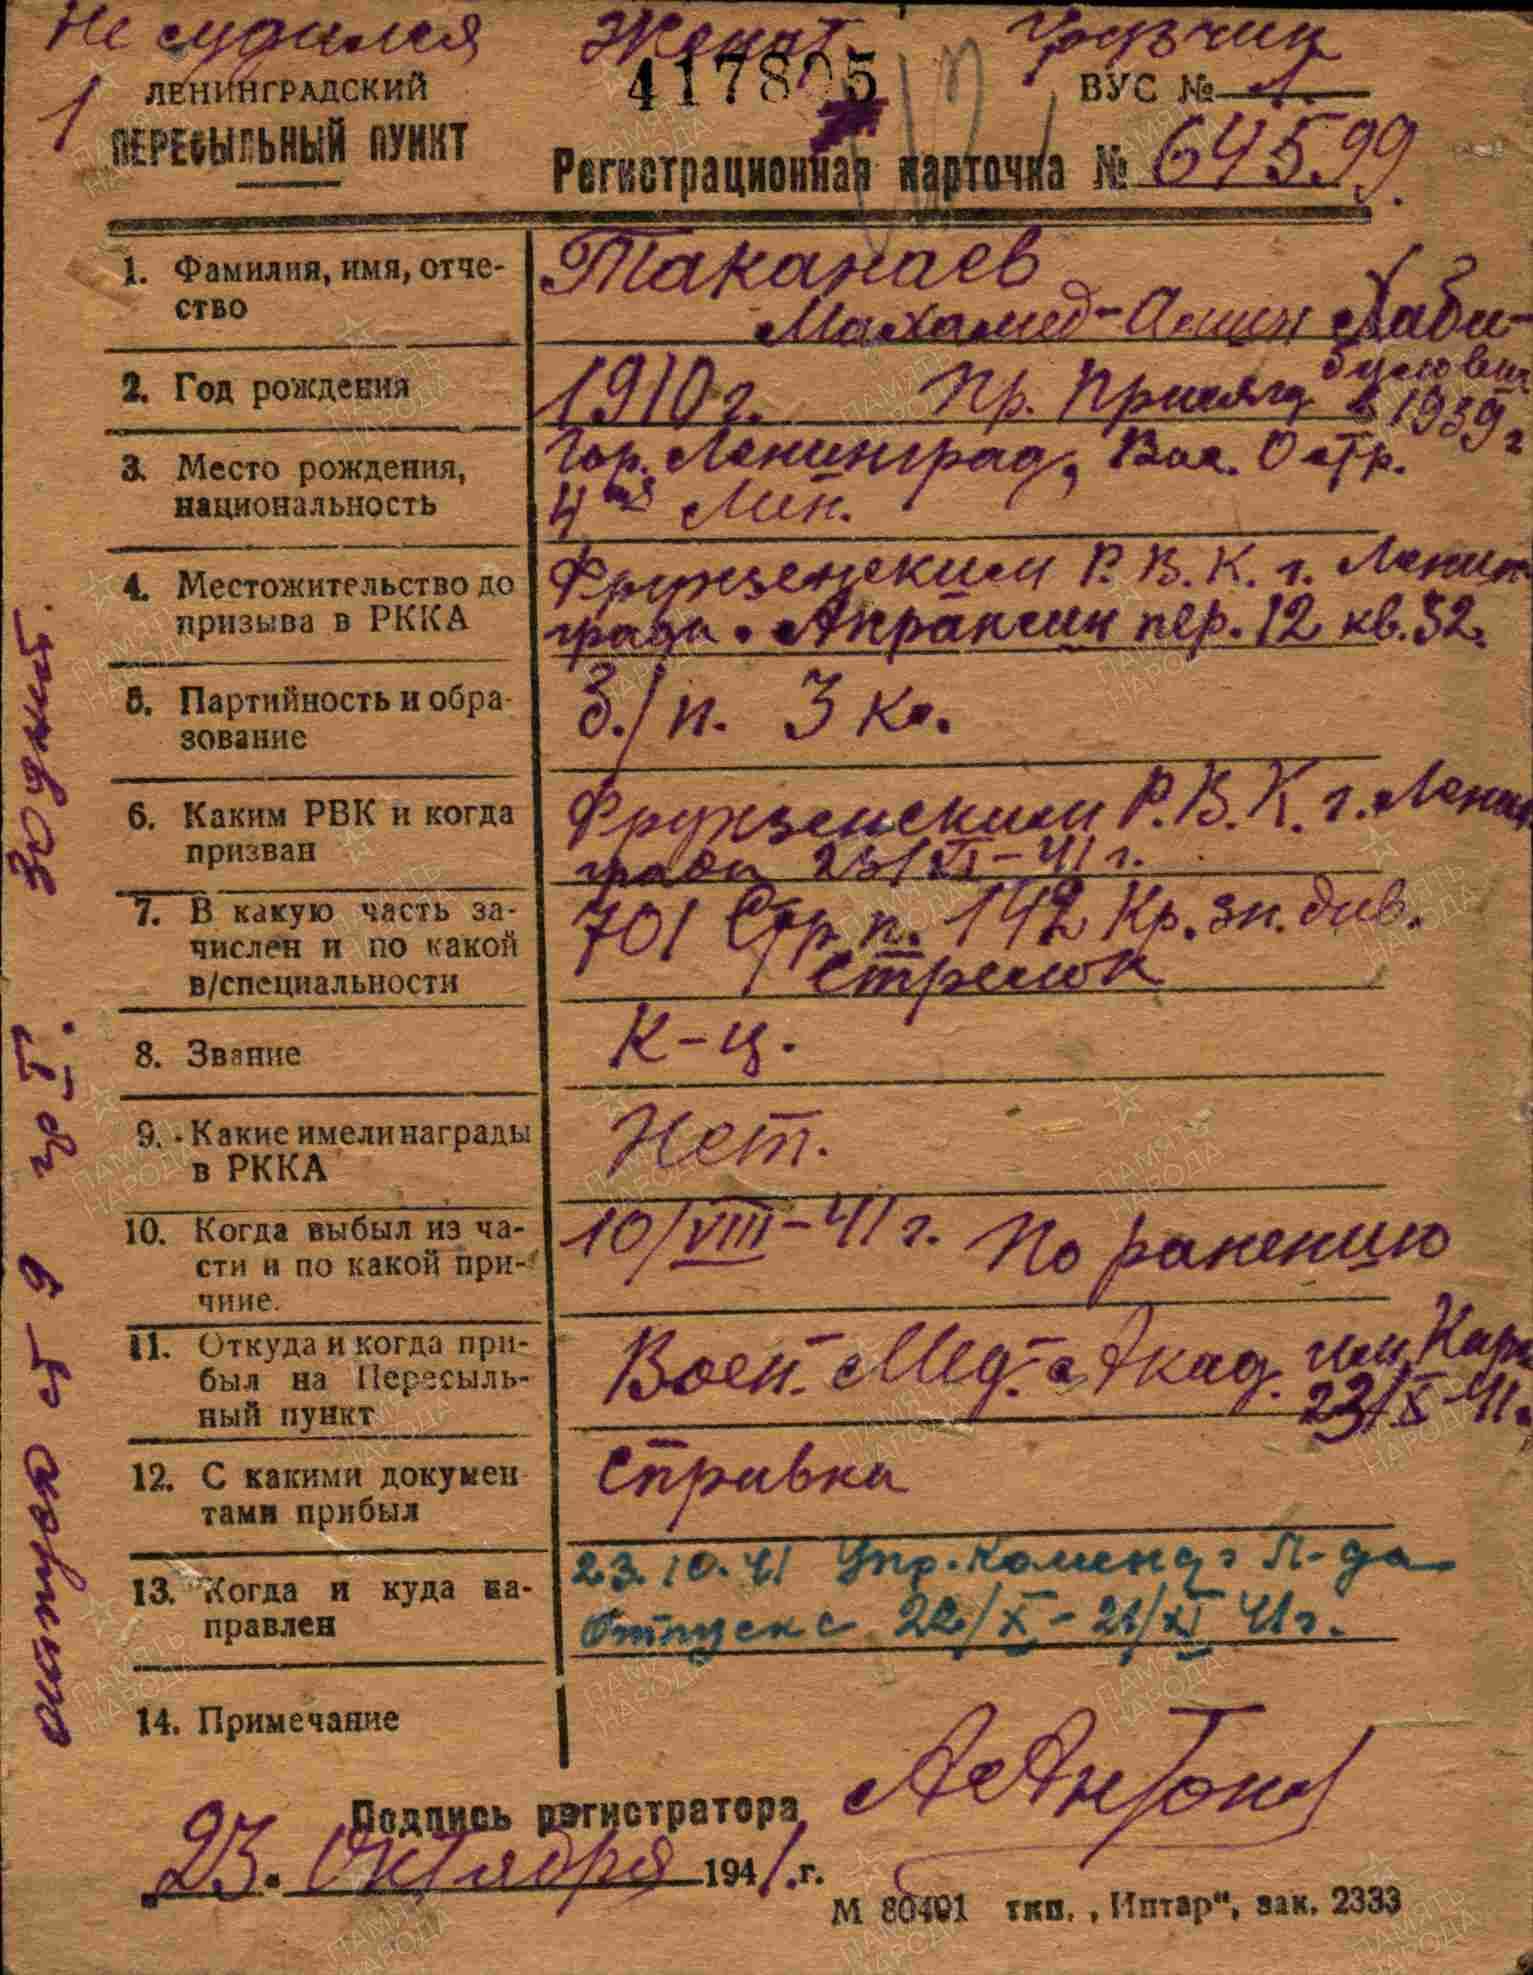 Не судился Женат Грузчик
1 ЛЕНИНГРАДСКИЙ 417895 ВУС № 1.
ПЕРЕСЫЛЬНЫЙ ПУНКТ
Регистрационная карточка № 64599.
1. Фамилия, имя, отче-
ство
Таканаев
Махамед-Амин Хаби-
булович
2. Год рождения
1910 г. Пр. Присягу в 1939 г
3. Место рождения,
национальность
Гор. Ленинград, Вас. Остр.
4ая Лин.
4. Местожительство до
призыва в РККА
Фрунзенским Р.В.К. г. Ленин-
града. Апраксин пер. 12 кв. 52.
5. Партийность и обра-
зование
б./п. 3 кл.
6. Каким РВК и когда
призван
Фрунзенским Р.В.К. г. Ленин
града 23/VI-41 г.
7. В какую часть за-
числен и по какой
в/специальности
701 Стр. п. 142 Кр. зн. див.
Стрелок
8. Звание
К-ц.
9. Какие имели награды
в РККА
Нет.
10. Когда выбыл из ча-
сти и по какой при-
чине.
10/VIII-41 г. По ранению
11. Откуда и когда при-
был на Пересыль-
ный пункт
Воен.-Мед.-Акад. им. Кир
23/X-41 г
12. С какими докумен
тами прибыл
Справка
13. Когда и куда на-
правлен
23.10.41 Упр. Коменд. г Л-да
Отпуск с 22/X-21/XI 41 г.
14. Примечание
отпуск 59 гот. 30 дней.
Подпись регистратора
23. Октября 1941. г.
М 80401 тип. „Интар“, зак. 2333
ПАМЯТЬ
НАРОДА